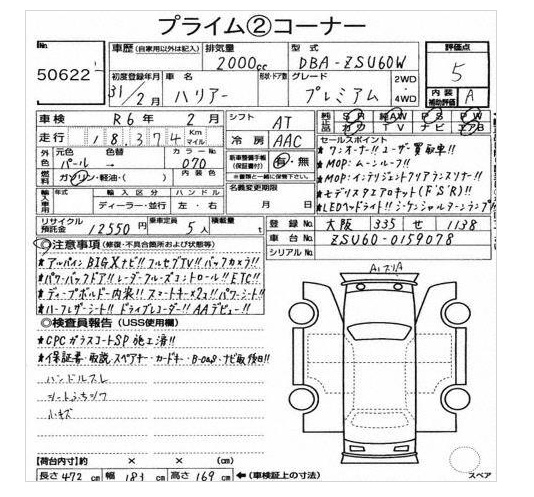 プライム②コーナー
No.
50622
車歴 (自家用以外は記入)
排気量
2000cc
型式
DBA-ZSU60W
評価点
5
初度登録年月
31/2月
車名
ハリアー
形状・ドア数
グレード
プレミアム
2WD
4WD
内装
補助評価
A
車検
R6年2月
シフト
AT
走行
18,374
Km
マイル
冷房
AAC
純正品
SR
純AW
PS
PW
カワ
TV
ナビ
エアB
外色
元色
色替
カラーNo.
パール
→
070
燃料
ガソリン・軽油・( )
内装色
新車整備手帳
(保証書付)
有・無
※書類と一緒に保管して下さい。
セールスポイント
★ワンオーナー!!ユーザー買取車!!
★MOP:ムーンルーフ!!
★MOP:インテリジェントクリアランスソナー!!
★モデリスタエアロキット(F'S'R)!!
★LEDヘッドライト!!シーケンシャルターンランプ!!
輸入車
年式
輸入区分
ハンドル
ディーラー・並行
左・右
名義変更期限
月 日
リサイクル
預託金
12550円
乗車定員
5人
積載量
t
登録No.
大阪 335 せ 1138
車台No.
ZSU60-0159078
シリアルNo.
◎注意事項 (修復・不具合箇所および状態等)
★アルパインBIGXナビ!!フルセグTV!!バックカメラ!!
★パワーバックドア!!レーダークルーズコントロール!!ETC!!
★ディープボルドー内装!!スマートキー×2コ!!パワーシート!!
★ハーフレザーシート!!ドライブレコーダー!!AAデビュー!!
◎検査員報告 (USS使用欄)
★CPCガラスコートSP施工済!!
★保証書・取説・スペアキー・カードキー・B-CAS・ナビ取後日!!
ハンドルスレ
シートふちシワ
小キズ
A1 アリA
【荷台内寸】約 × × (cm)
長さ472cm
幅183cm
高さ169cm
←(車検証上の寸法)
スペア